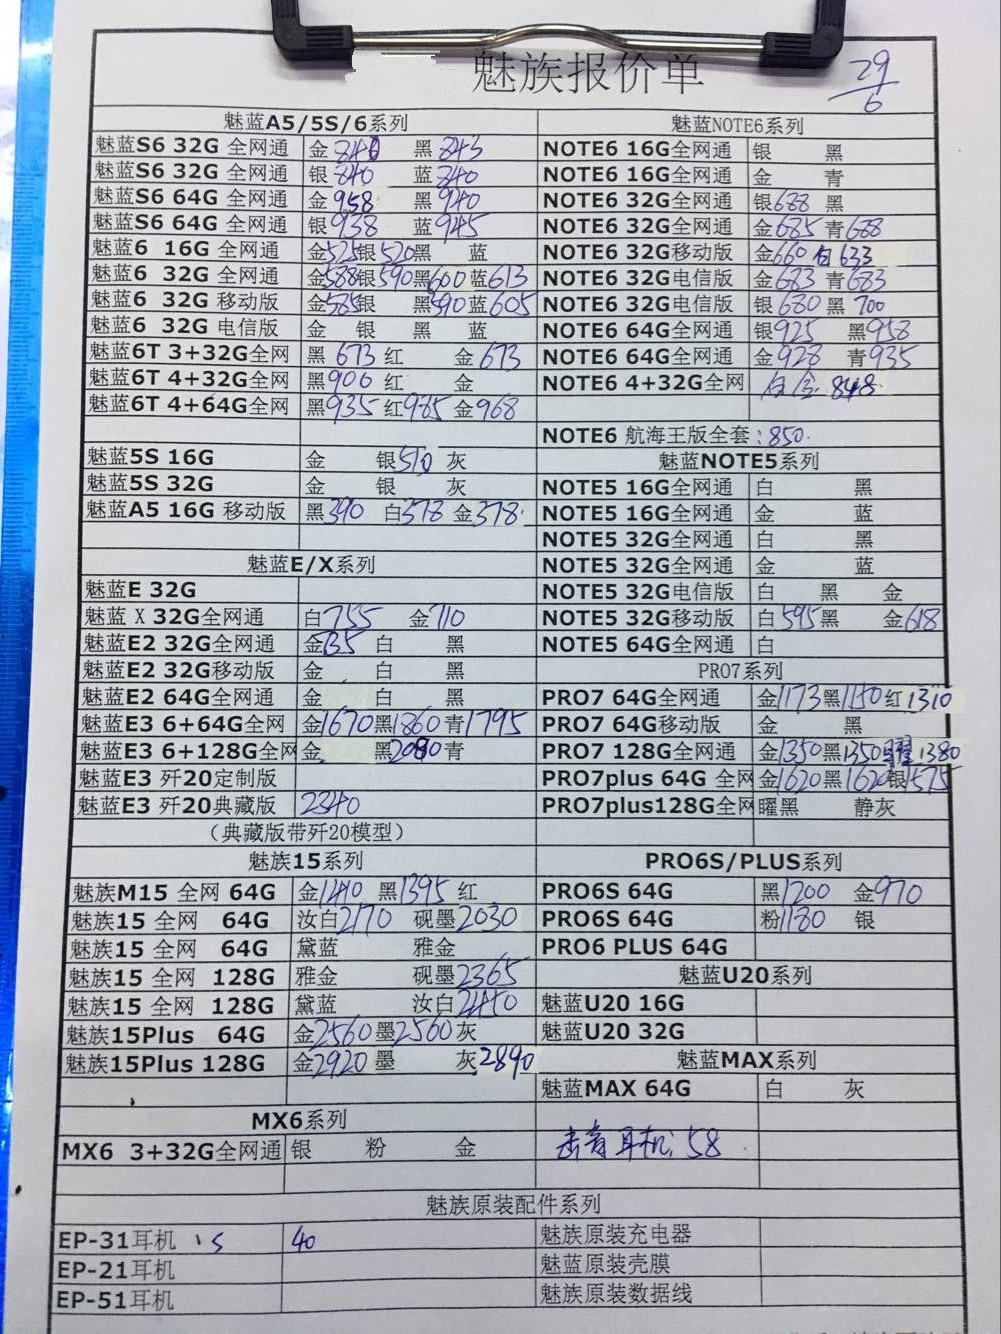 魅族报价单 29/6
魅蓝A5/5S/6系列
魅蓝S6 32G 全网通 金 840 黑 843
魅蓝S6 32G 全网通 银 840 蓝 840
魅蓝S6 64G 全网通 金 958 黑 940
魅蓝S6 64G 全网通 银 938 蓝 945
魅蓝6 16G 全网通 金525银520黑 蓝
魅蓝6 32G 全网通 金588银590黑600蓝613
魅蓝6 32G 移动版 金585银 黑590蓝605
魅蓝6 32G 电信版 金 银 黑 蓝
魅蓝6T 3+32G全网 黑 673 红 金 673
魅蓝6T 4+32G全网 黑906 红 金
魅蓝6T 4+64G全网 黑935 红965 金968
魅蓝5S 16G 金 银510 灰
魅蓝5S 32G 金 银 灰
魅蓝A5 16G 移动版 黑390 白378 金378
魅蓝E/X系列
魅蓝E 32G
魅蓝 X 32G全网通 白755 金710
魅蓝E2 32G全网通 金 白 黑
魅蓝E2 32G移动版 金 白 黑
魅蓝E2 64G全网通 金 白 黑
魅蓝E3 6+64G全网 金1670黑1860青1795
魅蓝E3 6+128G全网 金 黑2080青
魅蓝E3 歼20定制版
魅蓝E3 歼20典藏版 2340
（典藏版带歼20模型）
魅族15系列
魅族M15 全网 64G 金1410 黑1395 红
魅族15 全网 64G 汝白2170 砚墨2030
魅族15 全网 64G 黛蓝 雅金
魅族15 全网 128G 雅金 砚墨2365
魅族15 全网 128G 黛蓝 汝白2410
魅族15Plus 64G 金2560墨2560灰
魅族15Plus 128G 金2920墨 灰2890
MX6系列
MX6 3+32G全网通 银 粉 金
魅蓝NOTE6系列
NOTE6 16G全网通 银 黑
NOTE6 16G全网通 金 青
NOTE6 32G全网通 银688 黑
NOTE6 32G全网通 金685 青688
NOTE6 32G移动版 金660 白 633
NOTE6 32G电信版 金683 青683
NOTE6 32G电信版 银680 黑 700
NOTE6 64G全网通 银925 黑958
NOTE6 64G全网通 金928 青935
NOTE6 4+32G全网 白金 848
NOTE6 航海王版全套：850
魅蓝NOTE5系列
NOTE5 16G全网通 白 黑
NOTE5 16G全网通 金 蓝
NOTE5 32G全网通 白 黑
NOTE5 32G全网通 金 蓝
NOTE5 32G电信版 白 黑 金
NOTE5 32G移动版 白595黑 金618
NOTE5 64G全网通 白
PRO7系列
PRO7 64G全网通 金1173黑1150红1310
PRO7 64G移动版 金 黑
PRO7 128G全网通 金1350黑1350曜1380
PRO7plus 64G 全网 金1620黑1620银1575
PRO7plus128G全网 曜黑 静灰
PRO6S/PLUS系列
PRO6S 64G 黑1200 金970
PRO6S 64G 粉1180 银
PRO6 PLUS 64G
魅蓝U20系列
魅蓝U20 16G
魅蓝U20 32G
魅蓝MAX系列
魅蓝MAX 64G 白 灰
击音耳机: 58
魅族原装配件系列
EP-31耳机 15 40
EP-21耳机
EP-51耳机
魅族原装充电器
魅蓝原装壳膜
魅族原装数据线